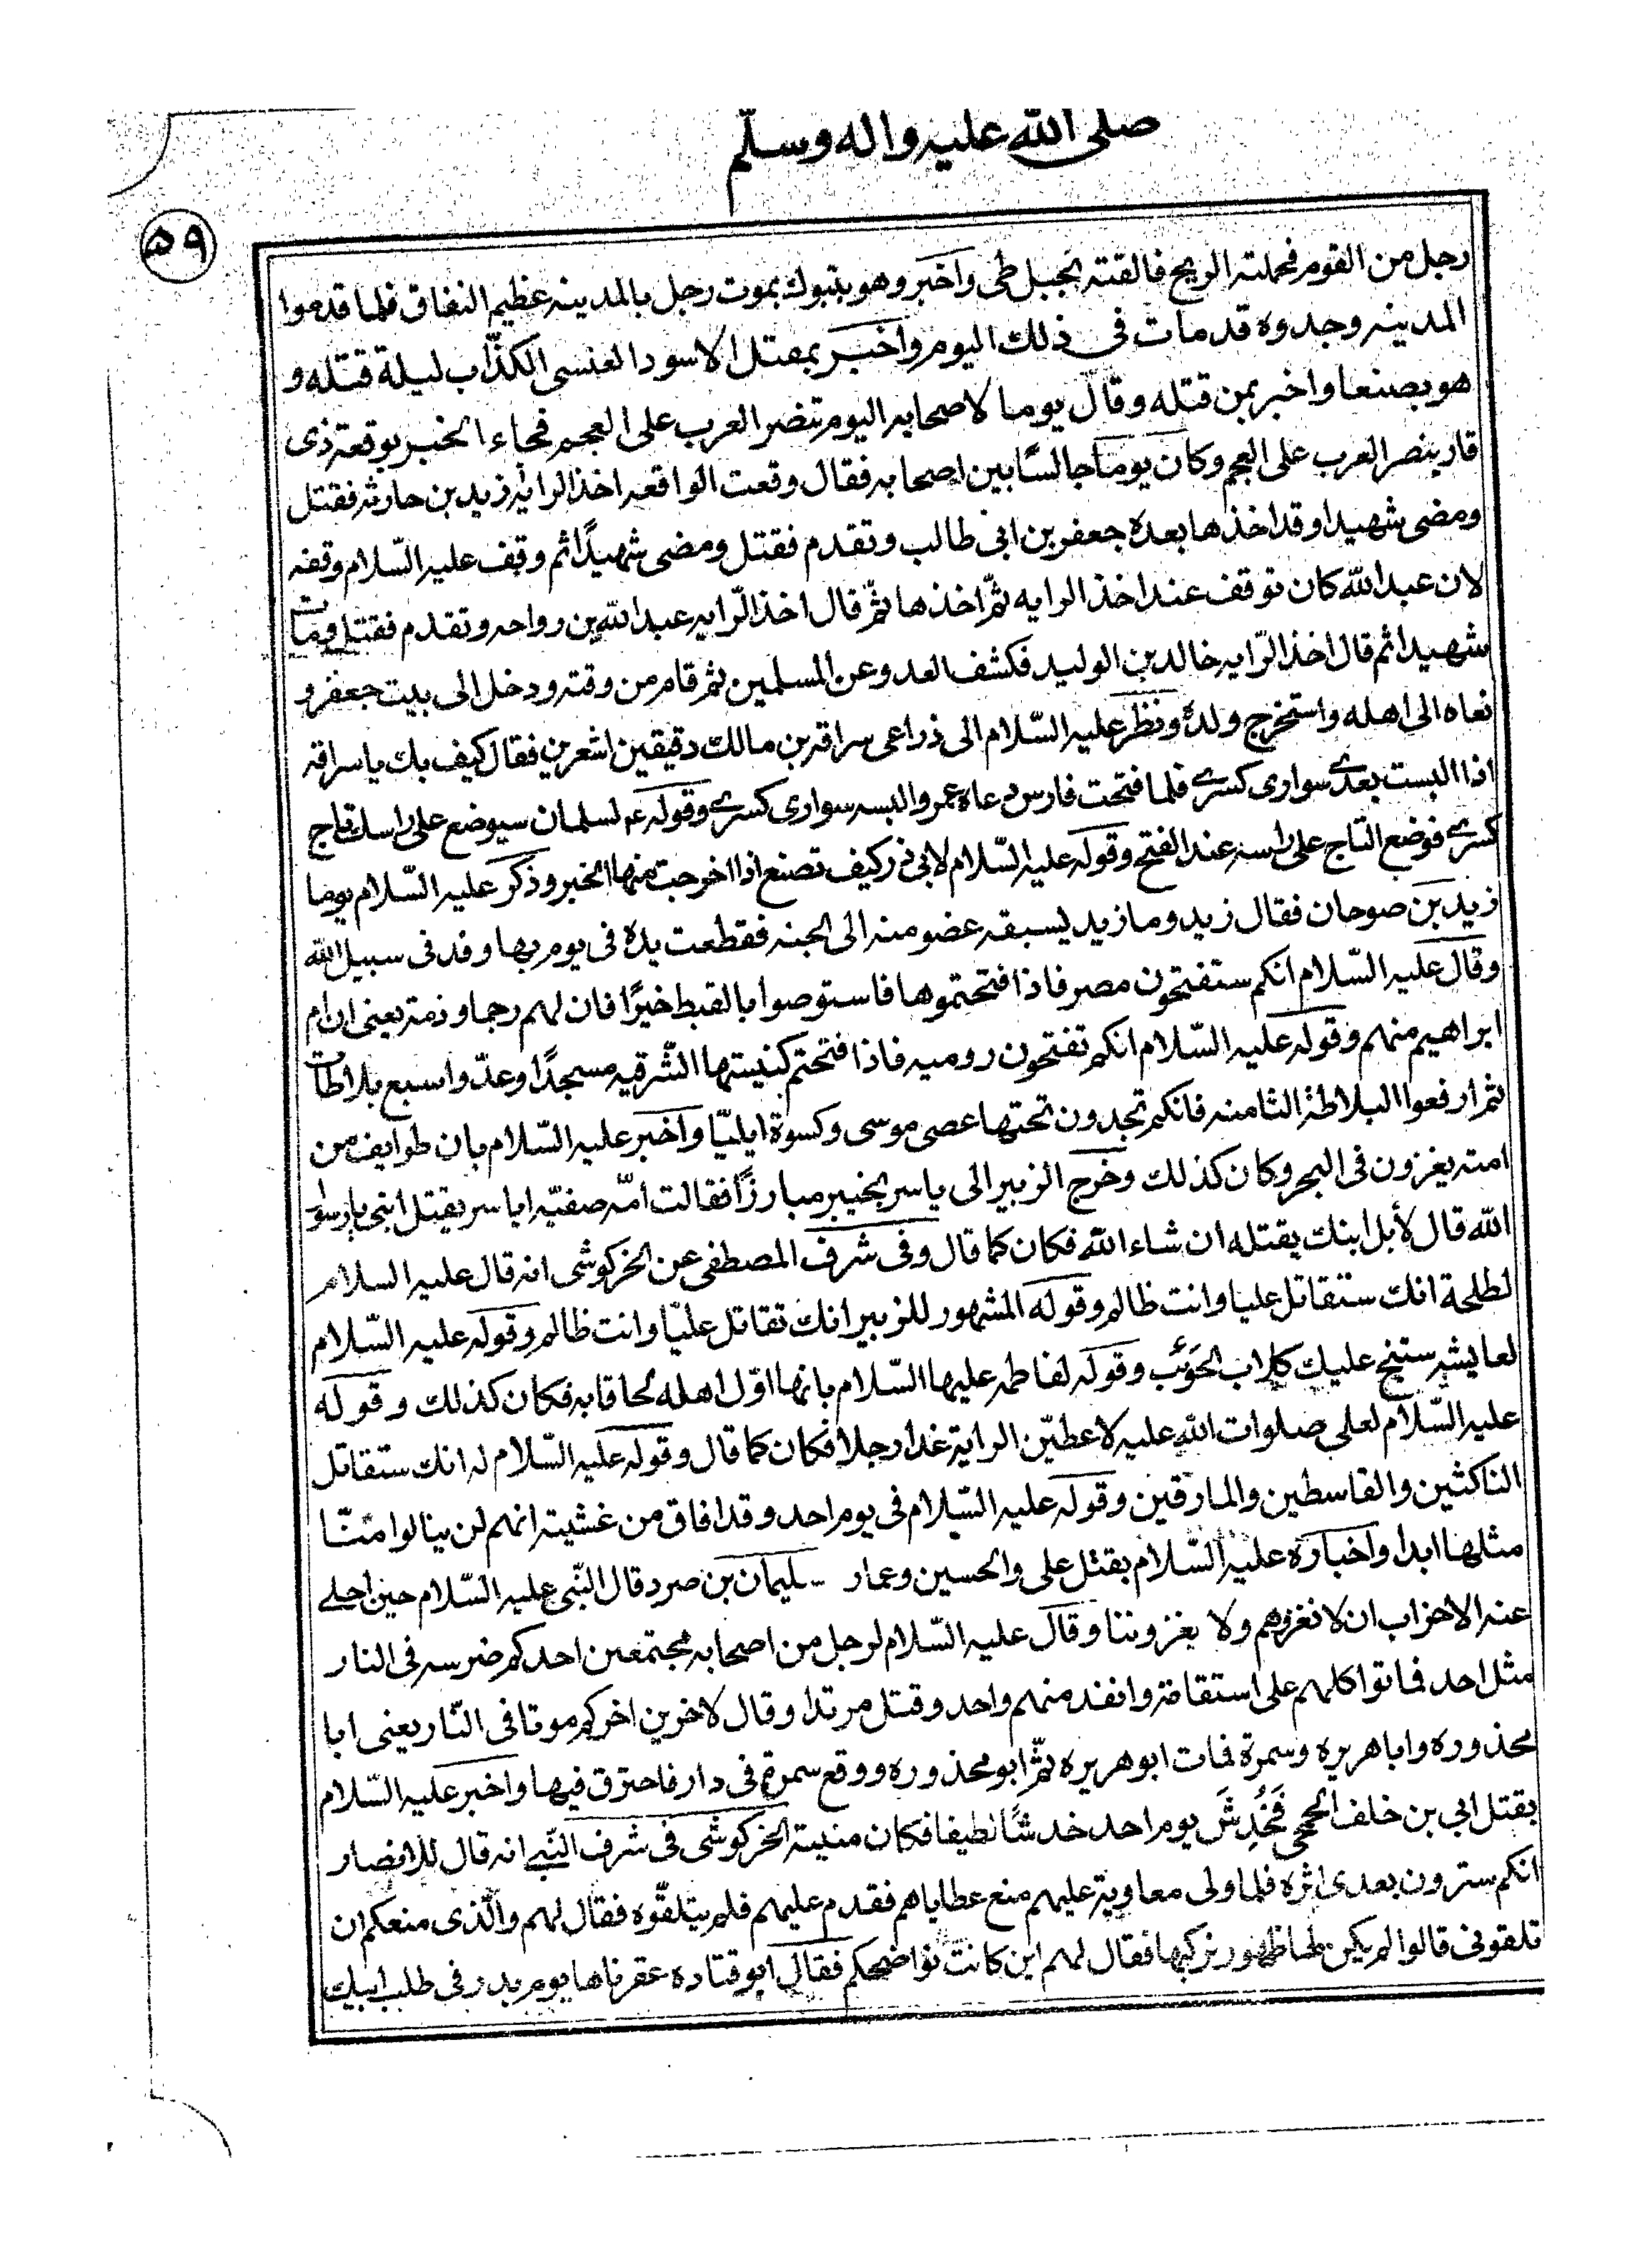 صلى الله عليه واله وسلّم
۵۹
رجل من القوم فحملته الريح فالقته بجبل طى واخبر وهو بتبوك بموت رجل بالمدينه عظيم النفاق فلما قدموا
المدينه وجدوه قد مات فى ذلك اليوم واخبر بمقتل الاسود العنسى الكذّاب ليلة قتله و
هو بصنعا واخبر بمن قتله وقال يوما لاصحابه اليوم تنصر العرب على العجم فجاء الخبر بوقعة ذى
قار بنصر العرب على العجم وكان يوما جالسًا بين اصحابه فقال وقعت الواقعه اخذ الرايه زيد بن حارثه فقتل
ومضى شهيدا وقد اخذها بعده جعفر بن ابى طالب وتقدم فقتل ومضى شهيدًا ثم وقف عليه السّلام وقفه
لان عبد الله كان توقف عند اخذ الرايه ثمّ اخذها ثمّ قال اخذ الرّايه عبد الله بن رواحه وتقدم فقتل ومات
شهيدا ثم قال اخذ الرّايه خالد بن الوليد فكشف العدو عن المسلمين ثم قام من وقته ودخل الى بيت جعفر و
نعاه الى اهله واستخرج ولده ونظر عليه السّلام الى ذراعى سراقه بن مالك دقيقين اشعرين فقال كيف بك ياسراقه
اذا البست بعدى سوارى كسرى فلما فتحت فارس دعاه عمر والبسه سوارى كسرى وقوله ع لسلمان سيوضع على راسك تاج
كسرى فوضع التاج على راسه عند الفتح وقوله عليه السّلام لابى ذر كيف تصنع اذا اخرجت منها الخبر وذكر عليه السّلام يوما
زيد بن صوحان فقال زيد وما زيد يسبقه عضو منه الى الجنه فقطعت يده فى يوم بهاوفد فى سبيل الله
وقال عليه السّلام انكم ستفتحون مصر فاذا فتحتموها فاستوصوا بالقبط خيرًا فان لهم رحما وذمة يعنى ان ام
ابراهيم منهم وقوله عليه السّلام انكم تفتحون روميه فاذا فتحتم كنيستها الشّرقيه مسجدًا وعدّوا سبع بلاطات
ثم ارفعوا البلاطة الثامنه فانكم تجدون تحتها عصى موسى وكسوة ايليّا واخبر عليه السّلام بان طوايف من
امته يغزون فى البحر وكان كذلك وخرج الزبير الى ياسر بخيبر مبارزًا فقالت امّه صفيّه اياسر يقتل ابنى يارسول
الله قال لا بل ابنك يقتله ان شاء الله فكان كما قال وفى شرف المصطفى عن الخركوشى انه قال عليه السلام
لطلحة انك ستقاتل عليا وانت ظالم وقوله المشهور للزبير انك تقاتل عليّا وانت ظالم وقوله عليه السّلام
لعايشه ستنبح عليك كلاب الحوئب وقوله لفاطمه عليها السّلام بانها اوّل اهله لحاقا به فكان كذلك وقوله
عليه السّلام لعلى صلوات الله عليه لاعطيّن الراية غدا رجلا فكان كما قال وقوله عليه السّلام له انك ستقاتل
الناكثين والقاسطين والمارقين وقوله عليه السّلام فى يوم احد وقد افاق من غشيته انهم لن ينالوا منّا
مثلها ابدا واخباره عليه السّلام بقتل على والحسين وعمار سليمان بن صرد قال النّبى عليه السّلام حين اجلى
عنه الاحزاب ان لا نغزوهم ولا يغزوننا وقال عليه السّلام لرجل من اصحابه مجتمعين احدكم ضرسه فى النار
مثل احد فماتوا كلهم على استقامة وانفذ منهم واحد وقتل مرتدا وقال لاخرين اخركم موتا فى النّار يعنى ابا
محذوره وابا هريره وسمرة فمات ابو هريره ثمّ ابو محذوره ووقع سمرة فى دار فاحترق فيها واخبر عليه السّلام
بقتل ابى بن خلف الجمحى فَخُدِشَ يوم احد خدشًا نطيفا فكان منيته الخركوشى فى شرف النّبى انه قال للانصار
انكم سترون بعدى اثره فلما ولى معاوية عليهم منع عطاياهم فقدم عليهم فلم يتلقّوه فقال لهم والّذى منعكم ان
تلقونى قالوا لم يكن لنا ظهور نركبها فقال لهم اين كانت نواضحكم فقال ابو قتاده عقرناها يوم بدر فى طلب ابيك